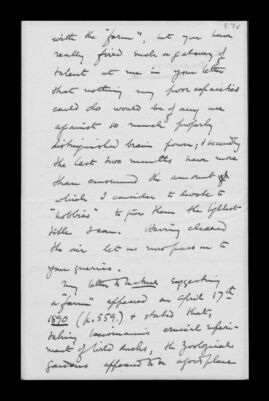 with the "farm", but you have
really fired such a galaxy of
talent at me in your letter
that nothing my poor capacities
could do would be of any use
against so much properly
distinguished brain power, & secondly
the last two months have more
than consumed the amount of
which I consider to devote to
"hobbies" to give them the lightest
title I can. Having cleared
the air let us now pass on to
your queries.
My letter to Nature suggesting
a "farm" appeared on April 17th
1890 (p. 559.) & stated that,
taking experiment of bird ducks, the Zoological
Gardens appeared to be a good place